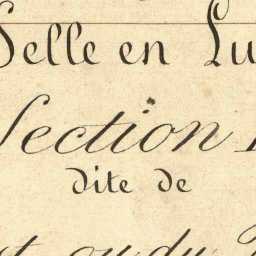 Selle en Lu
Section
dite de
et ou du